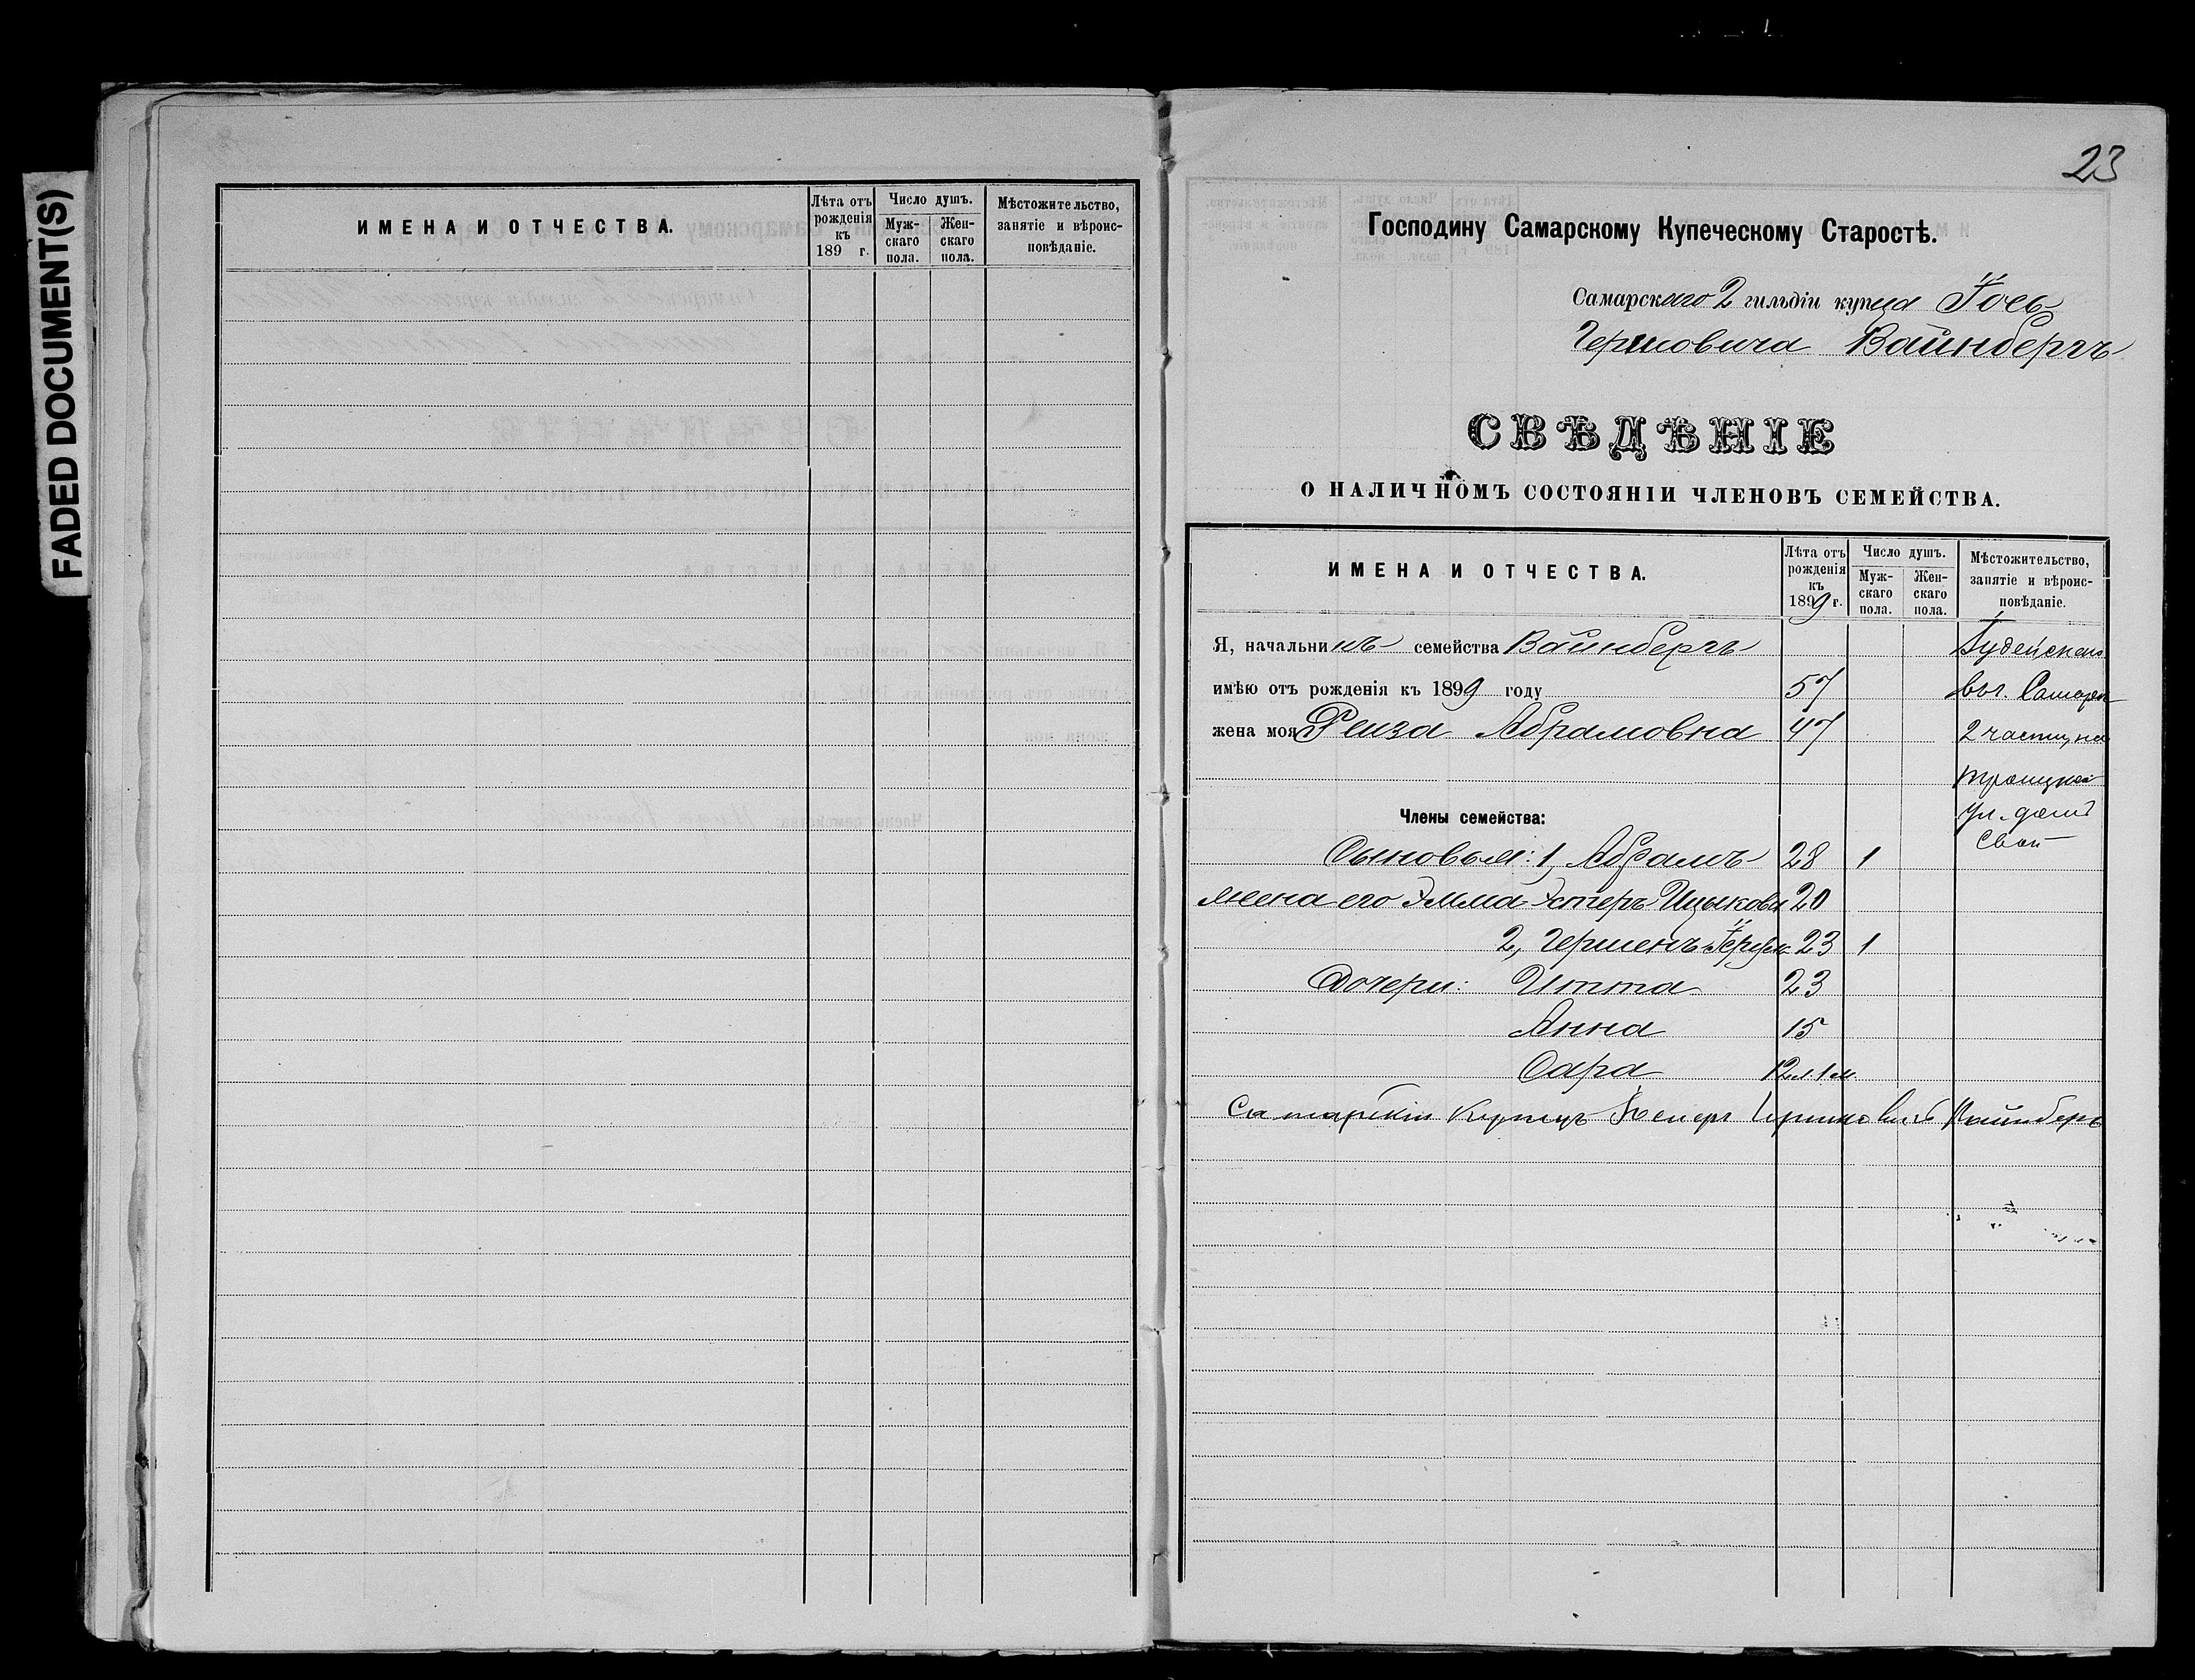 FADED DOCUMENT(S)
ИМЕНА И ОТЧЕСТВА.
Лѣта отъ рожденія къ 189 г.
Число душъ.
Муж-скаго пола.
Жен-скаго пола.
Мѣстожительство, занятіе и вѣроис-повѣданіе.
23
Господину Самарскому Купеческому Старостѣ.
Самарскаго 2 гильдіи купца Іось
Гершовича Вайнбергъ
СВѢДѢНІЕ
О НАЛИЧНОМЪ СОСТОЯНІИ ЧЛЕНОВЪ СЕМЕЙСТВА.
ИМЕНА И ОТЧЕСТВА.
Лѣта отъ рожденія къ 1899 г.
Число душъ.
Муж-скаго пола.
Жен-скаго пола.
Мѣстожительство, занятіе и вѣроис-повѣданіе.
Я, начальникъ семейства Вайнбергъ Іудейскаго
имѣю отъ рожденія къ 1899 году 57
жена моя Рейза Абрамовна 47 2 части, на
Троицкой
ул. домъ
Члены семейства:
свой
Сыновья: 1, Абрамъ 28 1
жена его Эмма-Эстеръ Ицыкова 20
2, Гершенъ 23 1
Дочери: Итта 23
Анна 15
Сара 12 л. 1 м.
Самарскій Купецъ Гершовичъ Вайнбергъ